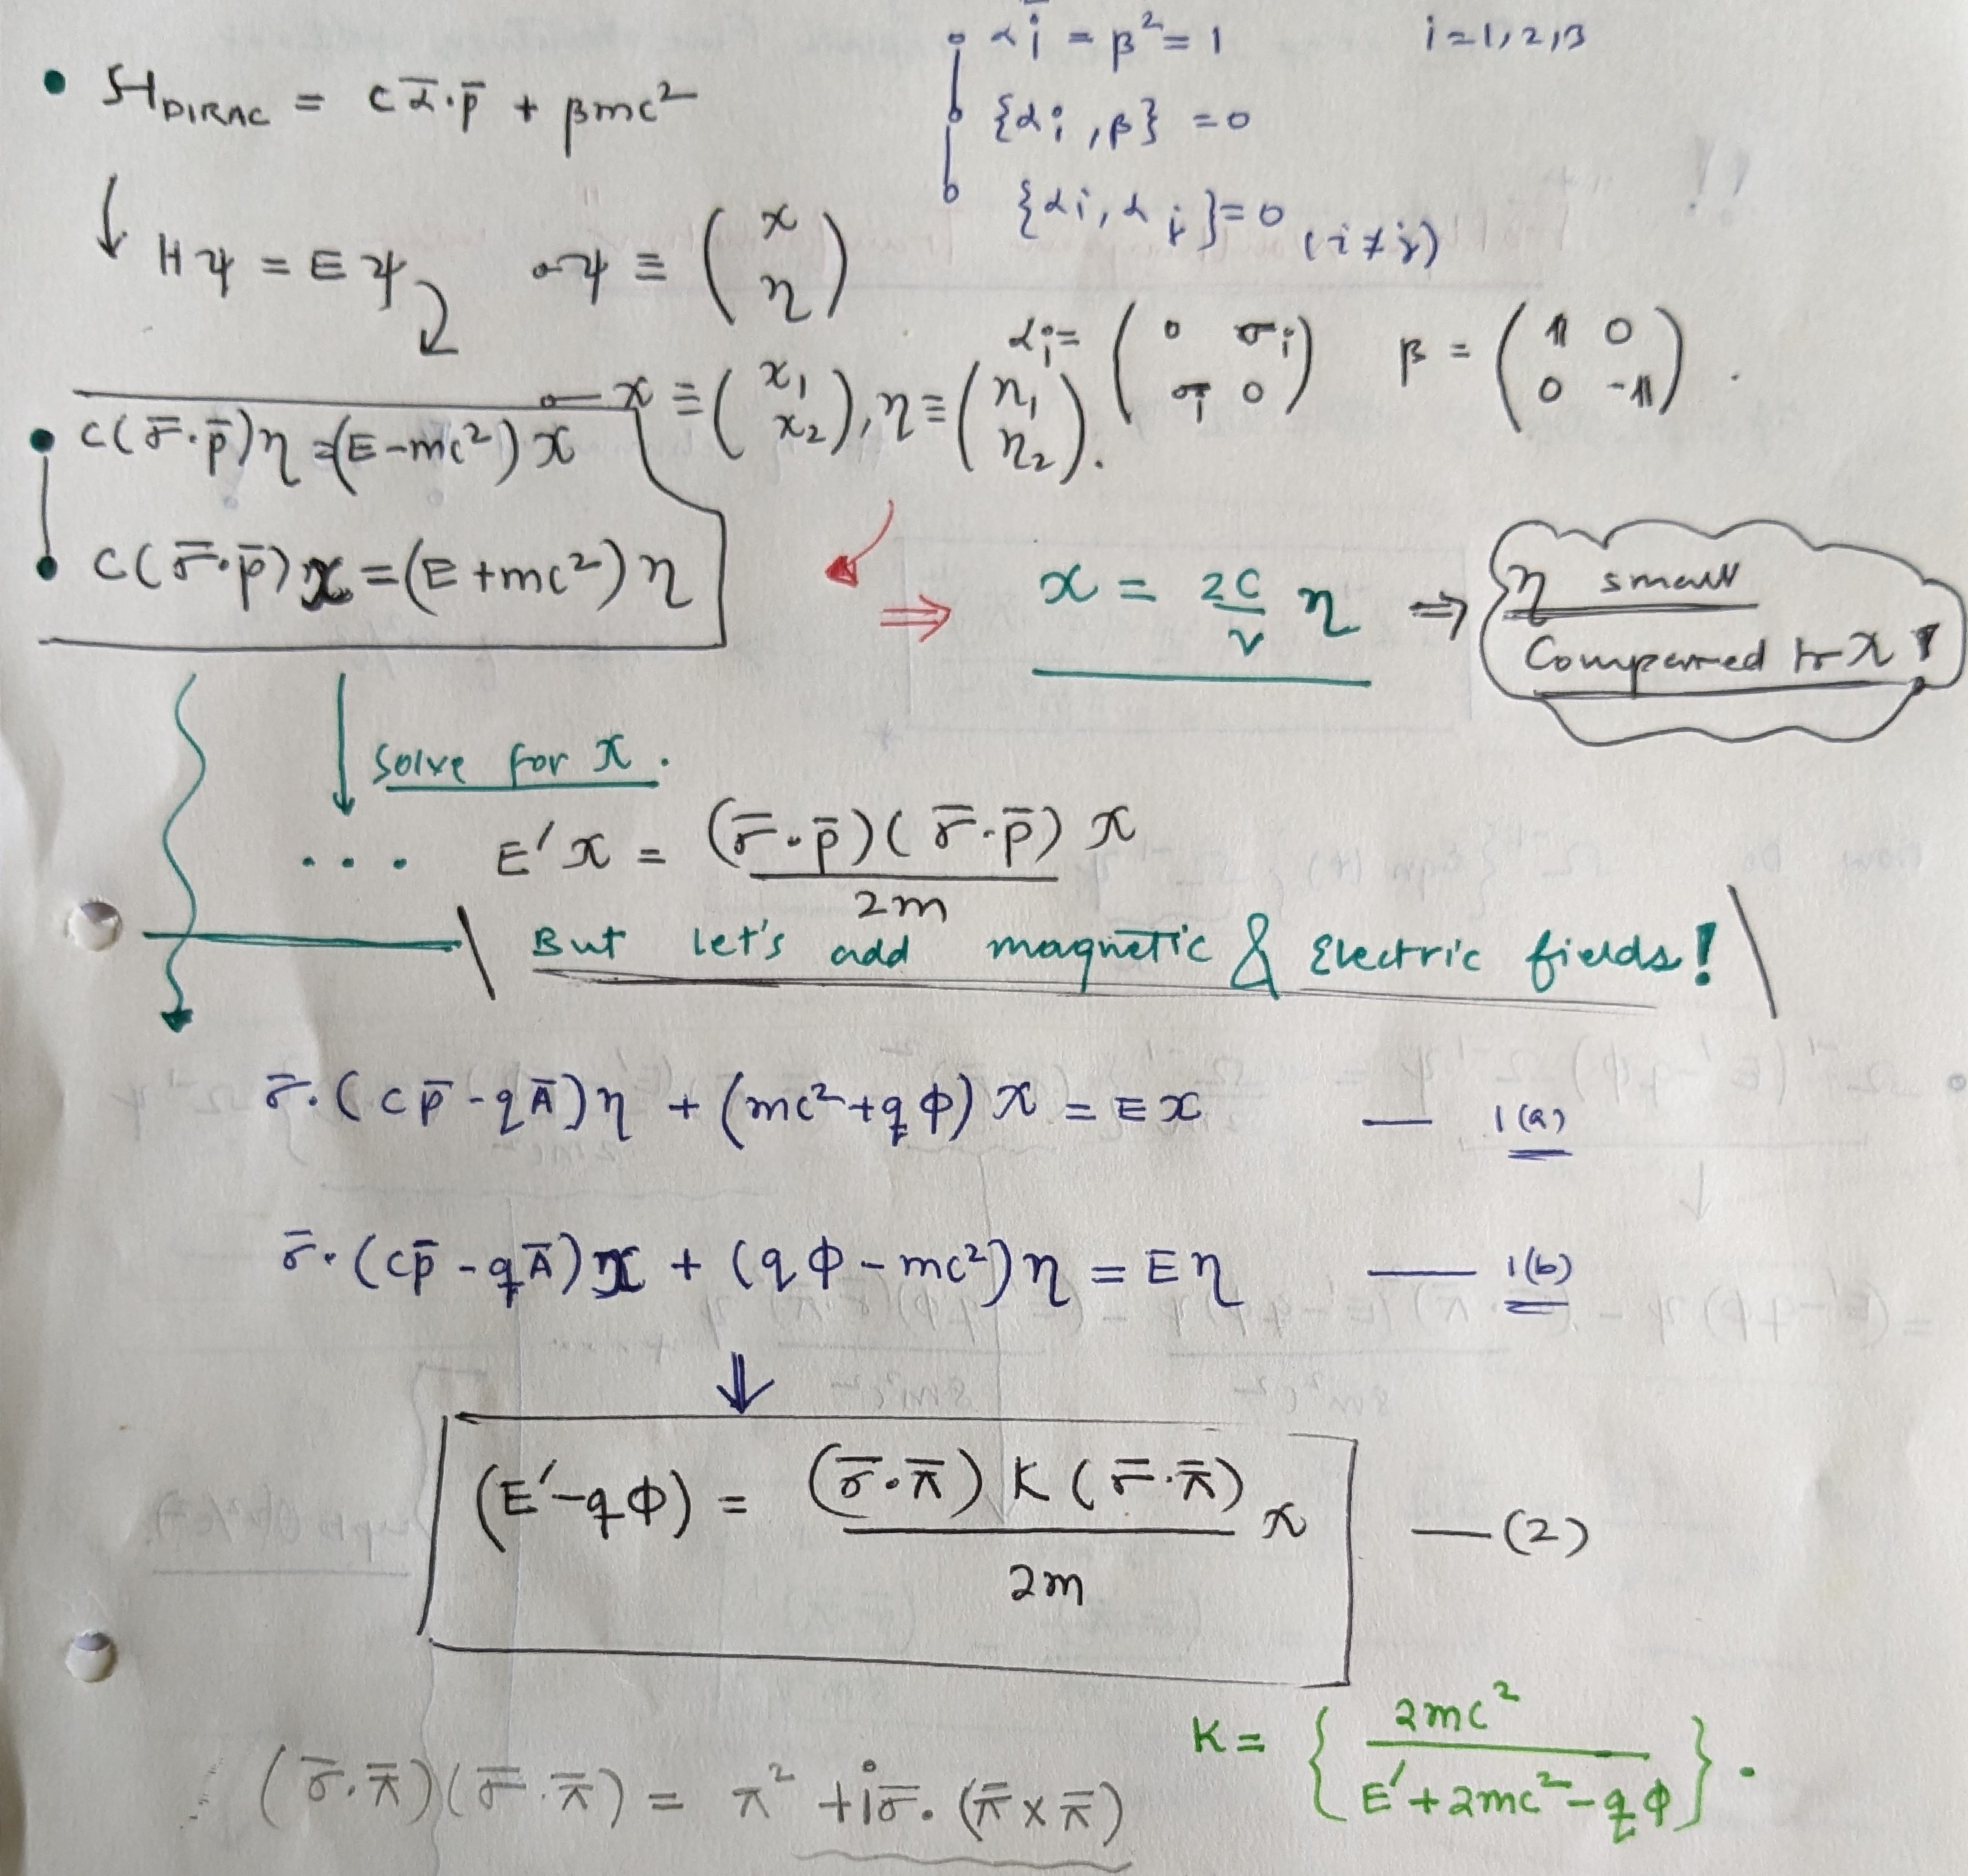 • H_DIRAC = c ᾱ·p̄ + βmc²
αi² = β² = 1 i=1,2,3
{αi, β} = 0
{αi, αj} = 0 (i≠j)
Hψ = Eψ ψ ≡ (χ η)
αi = (0 σi σi 0) β = (𝟙 0 0 -𝟙).
χ ≡ (χ1 χ2), η ≡ (η1 η2).
• c(σ̄·p̄)η = (E-mc²)χ
• c(σ̄·p̄)χ = (E+mc²)η
⇒ χ = 2c/v η ⇒ η small
Compared to χ !
Solve for χ.
... E′χ = (σ̄·p̄)(σ̄·p̄)χ / 2m
\ But let's add magnetic & Electric fields! \
σ̄·(cp̄-qĀ)η + (mc²+qϕ)χ = Eχ — 1(a)
σ̄·(cp̄-qĀ)χ + (qϕ-mc²)η = Eη — 1(b)
⇓
(E′-qϕ) = (σ̄·π̄) K (σ̄·π̄) / 2m χ — (2)
K = {2mc² / E′+2mc²-qϕ}.
(σ̄·π̄)(σ̄·π̄) = π² + iσ̄·(π̄×π̄)